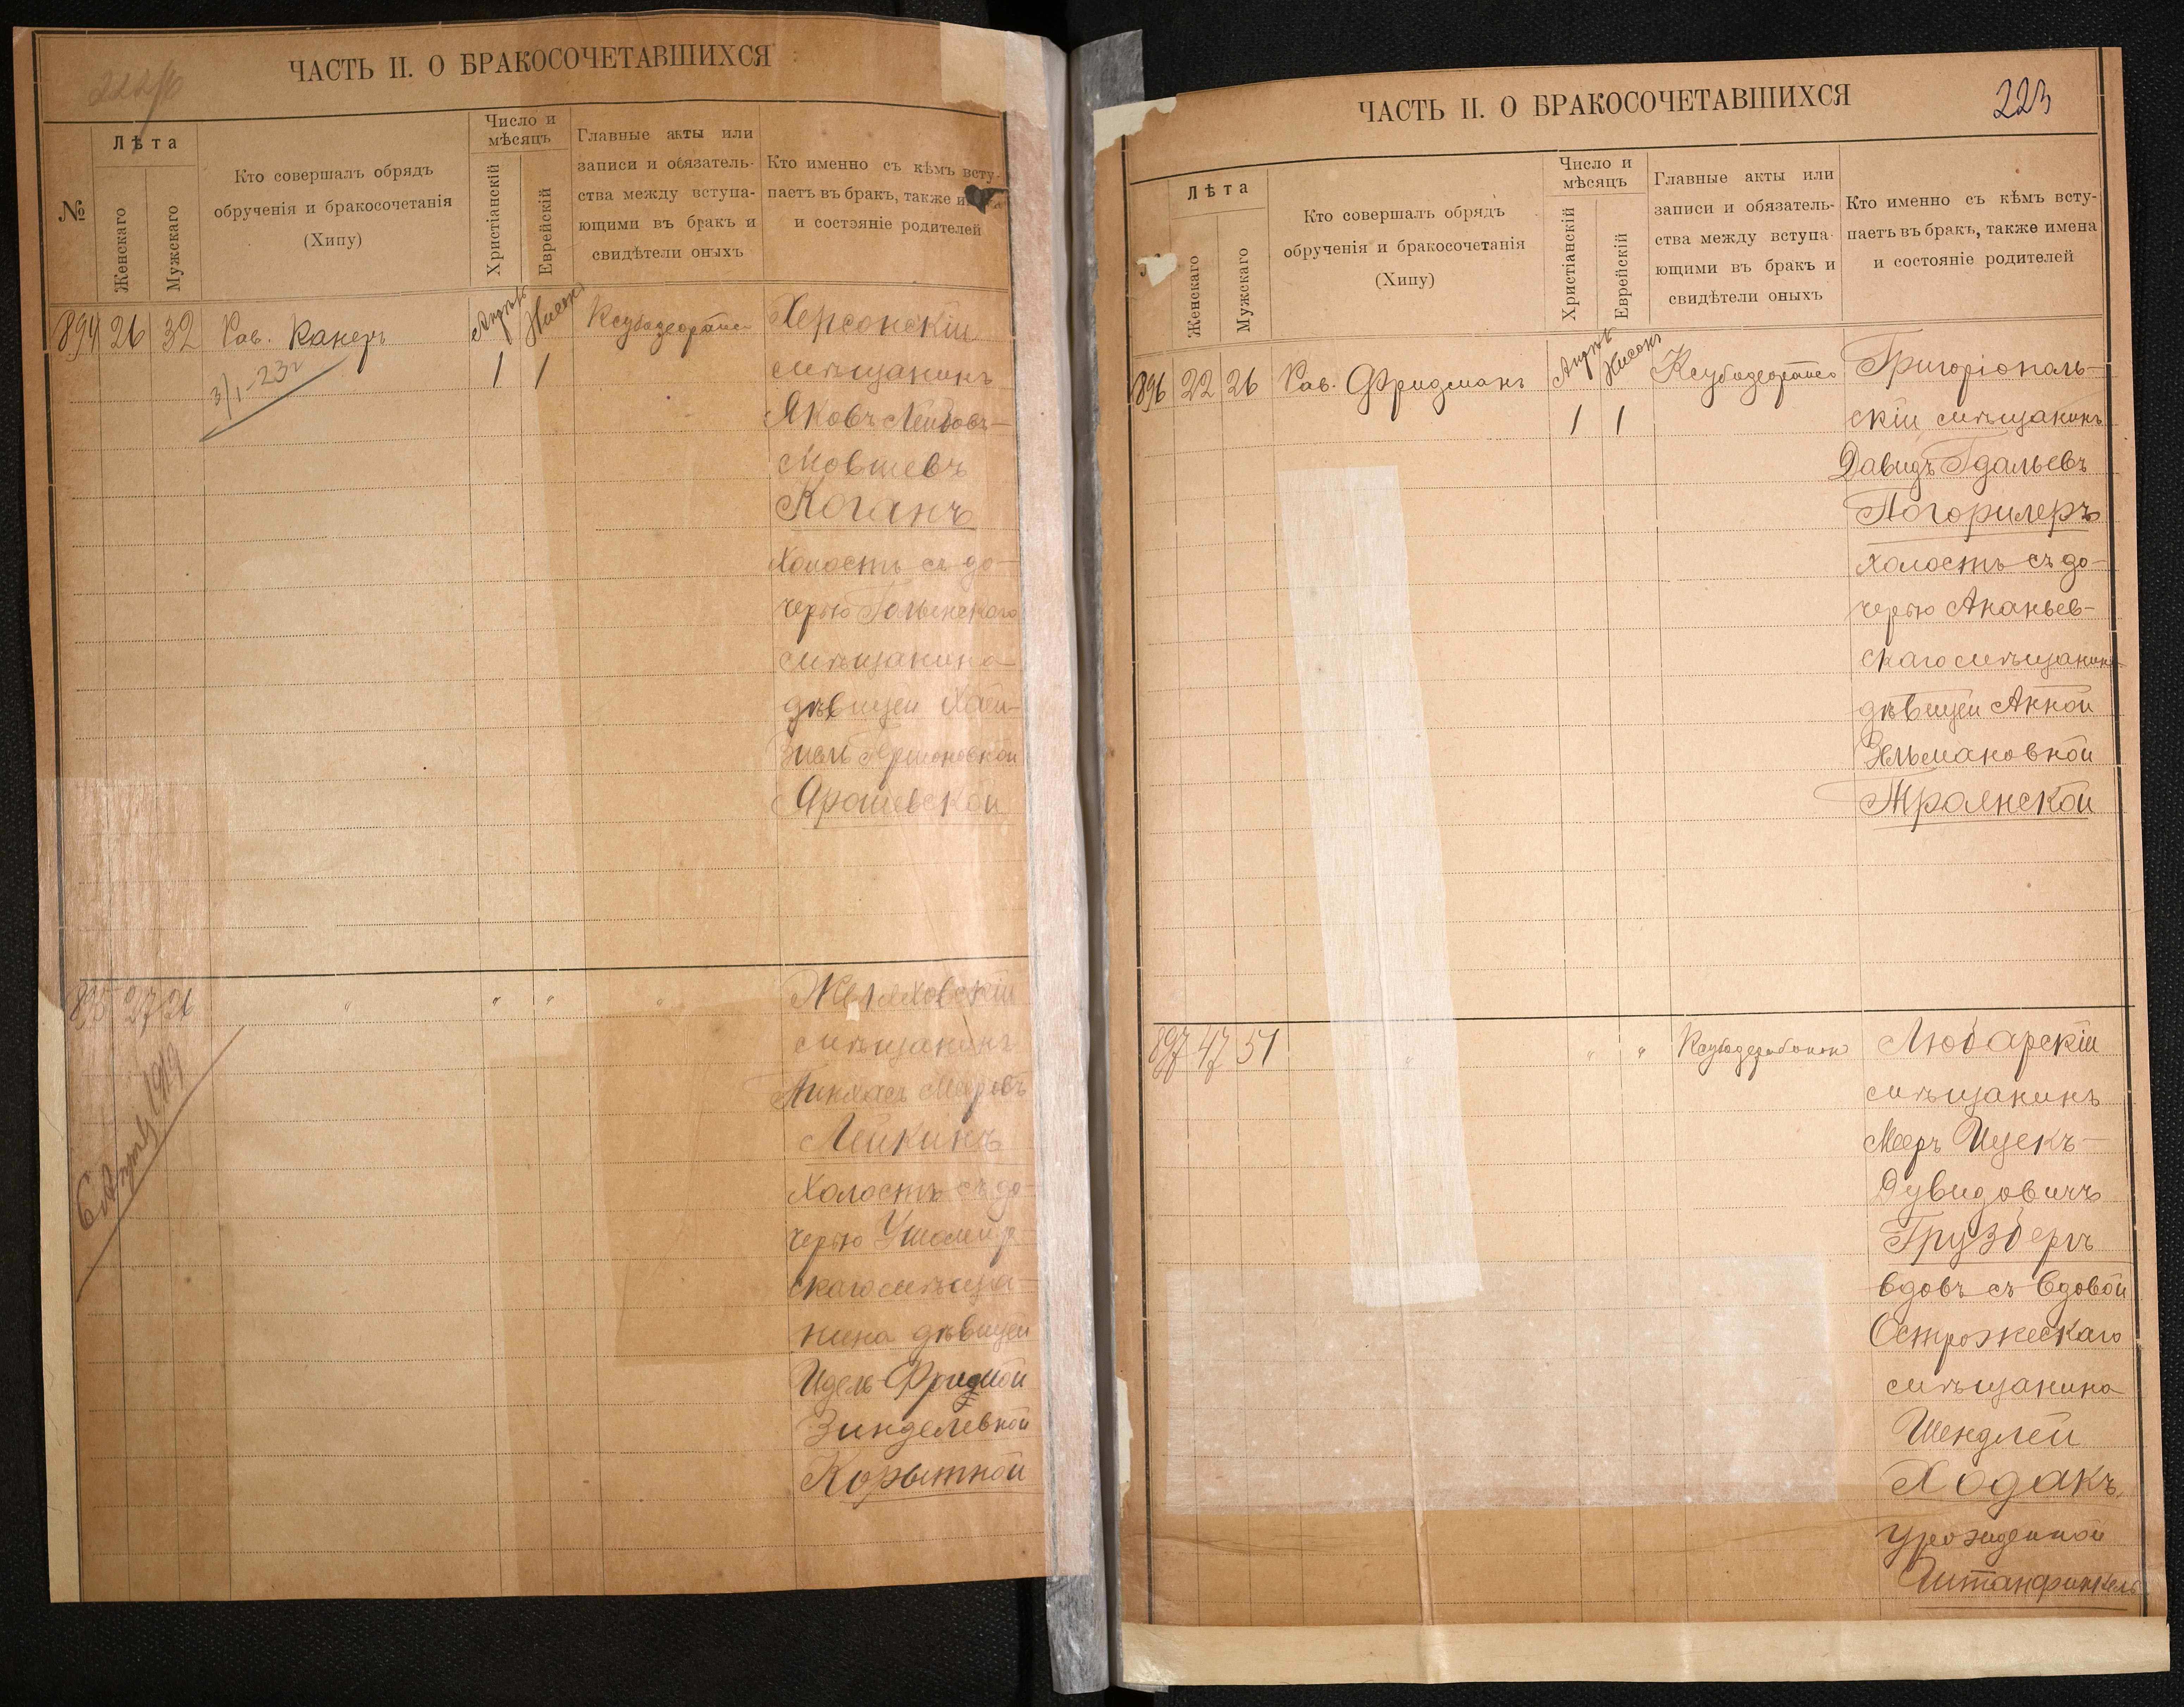 ЧАСТЬ II. О БРАКОСОЧЕТАВШИХСЯ
№
Лѣта
Женскаго
Мужскаго
Кто совершалъ обрядъ
обрученія и бракосочетанія
(Хипу)
Число и
мѣсяцъ
Христіанскій
Еврейскій
Главные акты или
записи и обязатель-
ства между вступа-
ющими въ бракъ и
свидѣтели оныхъ
Кто именно съ кѣмъ всту-
паетъ въ бракъ, также
и состояніе родителей
894 26 32 Рав. Канеръ
Апрѣл Нисонъ
1 1
Херсонскій
мѣщанинъ
Яковъ Лейбовъ-
Мовшевъ
Коганъ
холостъ съ до-
черью
мѣщанина
дѣвицей Хай-
Гершоновной
Ярошевской
895 27 26 " " " "
мѣщанинъ
Пинхасъ Мееровъ
Лейкинъ
Холостъ съ до-
черью
скаго мѣща-
нина дѣвицей
Идель-Фридой
Зинделевной
Корытной
6 1919
ЧАСТЬ II. О БРАКОСОЧЕТАВШИХСЯ
223
Лѣта
Женскаго
Мужскаго
Кто совершалъ обрядъ
обрученія и бракосочетанія
(Хипу)
Число и
мѣсяцъ
Христіанскій
Еврейскій
Главные акты или
записи и обязатель-
ства между вступа-
ющими въ бракъ и
свидѣтели оныхъ
Кто именно съ кѣмъ всту-
паетъ въ бракъ, также имена
и состояніе родителей
896 22 26 Рав. Фридманъ
Апрѣл Нисонъ
1 1
Григоріополь-
скій мѣщанинъ
Давидъ Гдальевъ
Погорилеръ
холостъ съ до-
черью Ананьев-
скаго мѣщанина
дѣвицей Анной
Зельмановной
Троянской
897 47 51 " " "
Любарскій
мѣщанинъ
Мееръ Ицекъ-
Дувидовичъ
Грузбергъ
вдовъ съ вдовой
Острожескаго
мѣщанина
Шендлей
Ходакъ,
урожденной
Штанфинкель